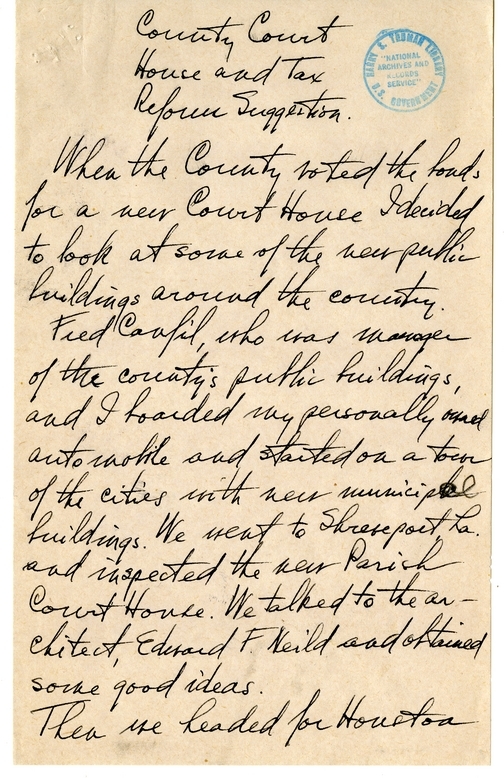 County Court
House and Tax
Reform Suggestion.
HARRY S. TRUMAN LIBRARY
"NATIONAL
ARCHIVES AND
RECORDS
SERVICE"
U.S. GOVERNMENT
When the County voted the bonds
for a new Court House I decided
to look at some of the new public
buildings around the country.
Fred Canfil, who was manager
of the county's public buildings,
and I boarded my personally owned
automobile and started on a tour
of the cities with new municipal
buildings. We went to Shreveport, La.
and inspected the new Parish
Court House. We talked to the ar-
chitect, Edward F. Neild and obtained
some good ideas.
Then we headed for Houston